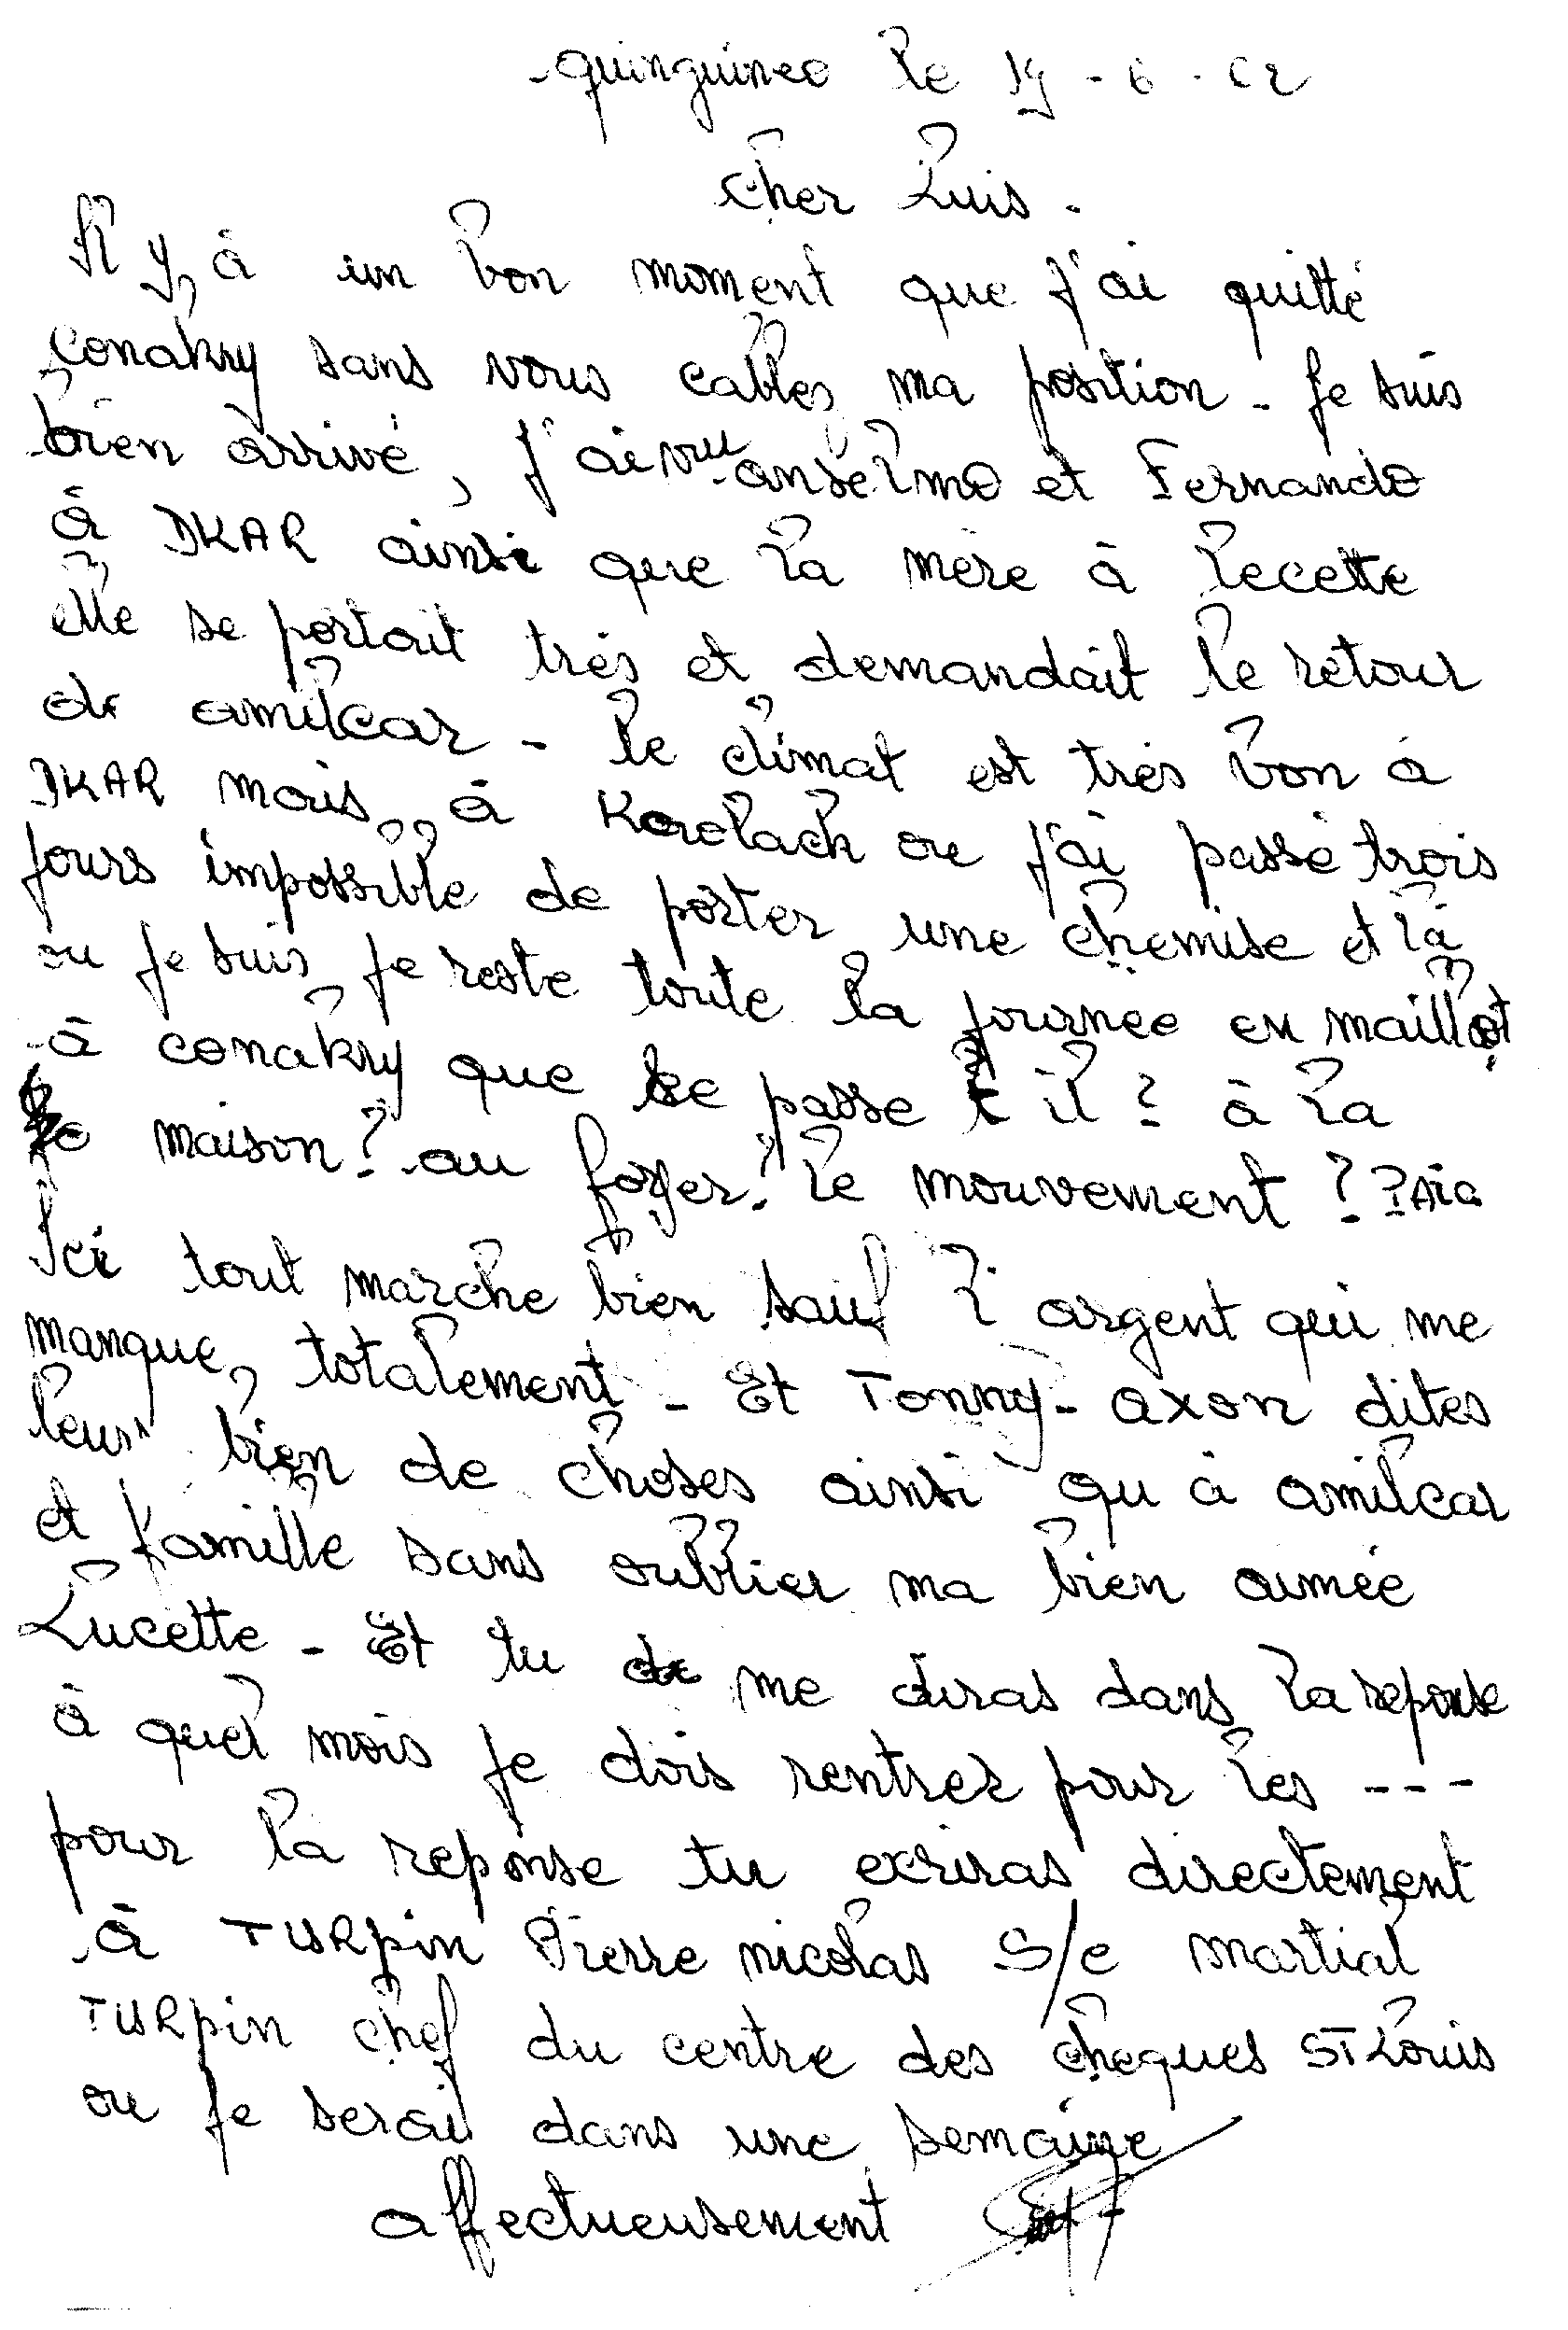 quinguineo le 19 - 6 - 62
Cher Luis.
Il y, à un bon moment que j'ai quitté
Conakry sans vous cablez ma position - Je suis
bien arrivé, j'ai vu anselmo et Fernando
à DKAR ainsi que la mère à Lecette
elle se portait très et demandait le retour
de amilcar - le climat est très bon à
DKAR mais, à Kaolack ou j'ai passé trois
jours impossible de porter une chemise et là
ou je suis je reste toute la journee en maillot
à conakry que se passe t il ? à la
maison ? au foyer ? le mouvement ? ?
Ici tout marche bien sauf l'argent qui me
manque, totalement - Et Tonny - axon dites
leur bien de choses ainsi qu à amilcar
et famille sans oublier ma bien aimée
Lucette - Et tu me diras dans la reponse
à quel mois je dois rentrer pour les ---
pour la reponse tu ecriras directement
à TURpin Pierre nicolas S/c martial
TURpin chef du centre des cheques ST Louis
ou je serai dans une semaine
affectueusement